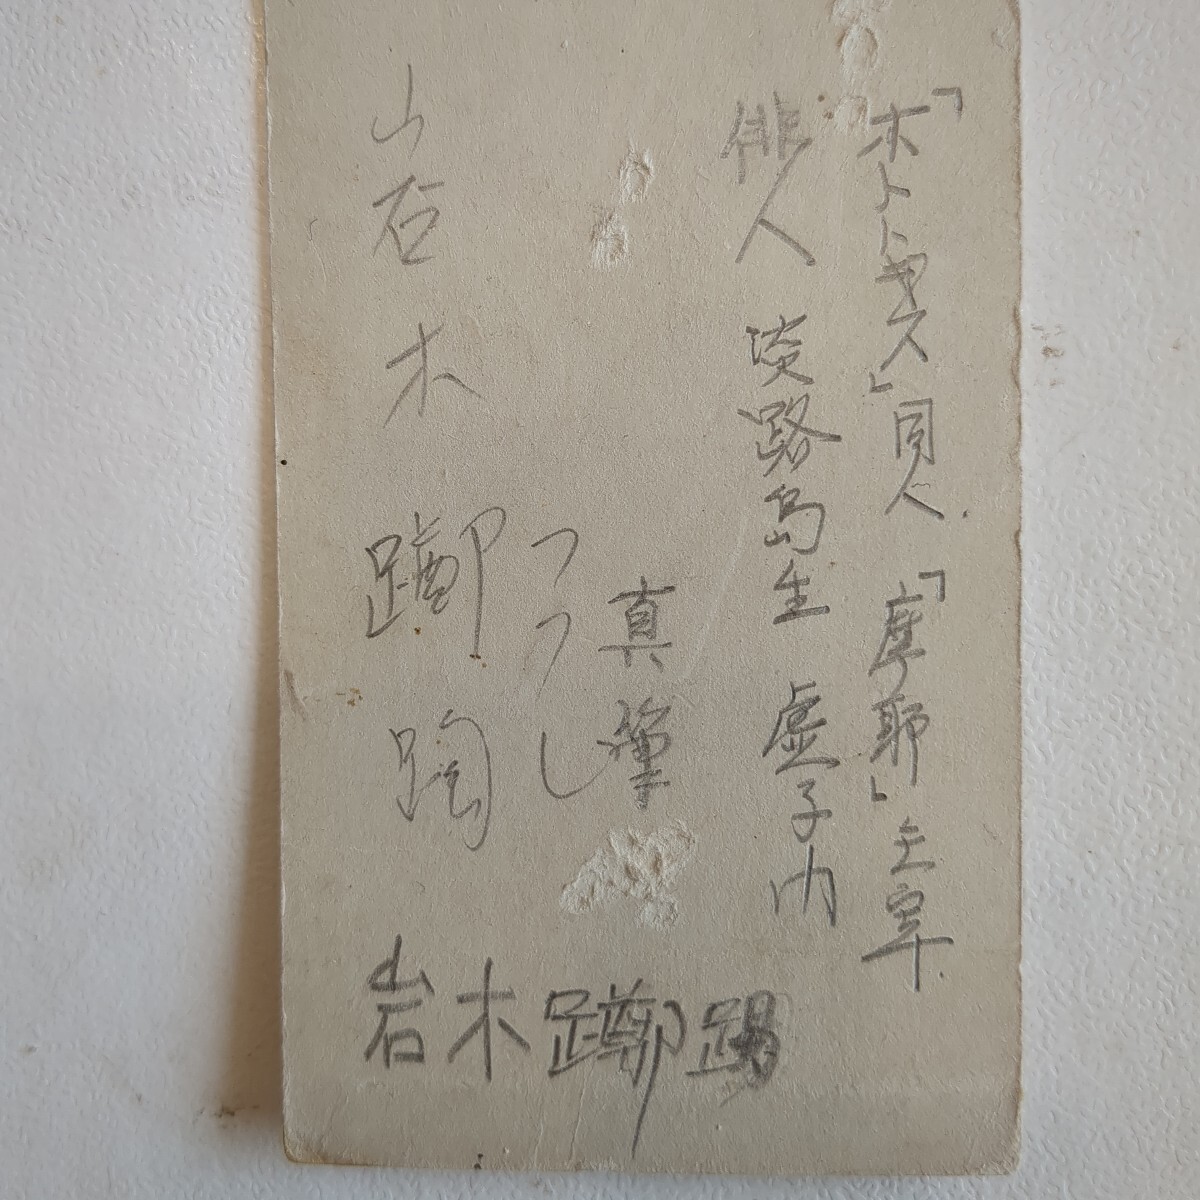 「ホトトギス」同人.「摩耶」主宰.
俳人 淡路島生 虚子門
真筆
つつじ
岩木 躑躅
岩木躑躅